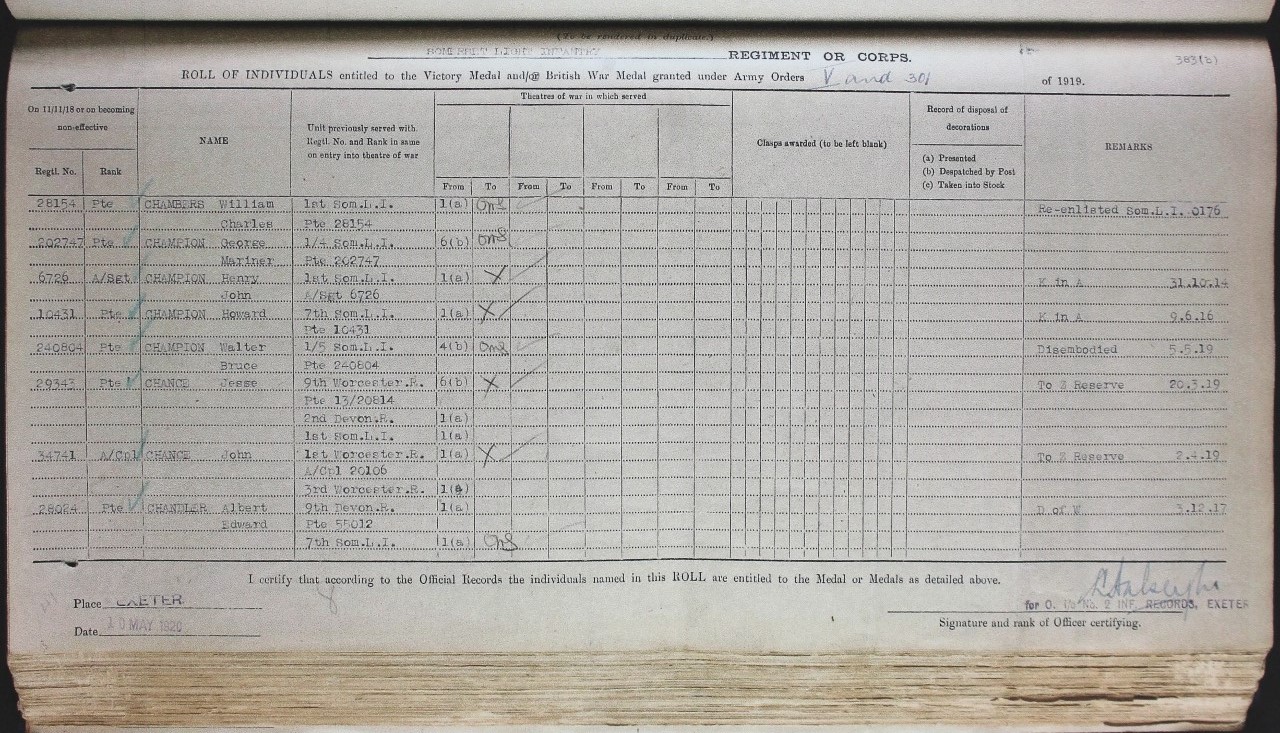 (To be rendered in duplicate.)
SOMERSET LIGHT INFANTRY REGIMENT OR CORPS.
383(b)
ROLL OF INDIVIDUALS entitled to the Victory Medal and/or British War Medal granted under Army Orders V and 301 of 1919.
On 11/11/18 or on becoming non-effective
Regtl. No. Rank
NAME
Unit previously served with. Regtl. No. and Rank in same on entry into theatre of war
Theatres of war in which served
From To From To From To From To
Clasps awarded (to be left blank)
Record of disposal of decorations
(a) Presented
(b) Despatched by Post
(c) Taken into Stock
REMARKS
28154 Pte CHAMBERS William 1st Som.L.I. 1(a) Re-enlisted Som.L.I. 0176
Charles Pte 28154
202747 Pte CHAMPION George 1/4 Som.L.I. 6(b)
Mariner Pte 202747
6726 A/Sgt CHAMPION Henry 1st Som.L.I. 1(a) X K in A 31.10.14
John A/Sgt 6726
10431 Pte CHAMPION Howard 7th Som.L.I. 1(a) X K in A 9.6.16
Pte 10431
240804 Pte CHAMPION Walter 1/5 Som.L.I. 4(b) Disembodied 5.5.19
Bruce Pte 240804
29343 Pte CHANCE Jesse 9th Worcester.R. 6(b) X To Z Reserve 20.3.19
Pte 13/20814
2nd Devon.R. 1(a)
1st Som.L.I. 1(a)
34741 A/Cpl CHANCE John 1st Worcester.R. 1(a) X To Z Reserve 2.4.19
A/Cpl 20106
3rd Worcester.R. 1(a)
28024 Pte CHANDLER Albert 9th Devon.R. 1(a) D of W 3.12.17
Edward Pte 55012
7th Som.L.I. 1(a)
I certify that according to the Official Records the individuals named in this ROLL are entitled to the Medal or Medals as detailed above.
Place EXETER
for O. i/c No. 2 INF. RECORDS, EXETER
Date 10 MAY 1920
Signature and rank of Officer certifying.